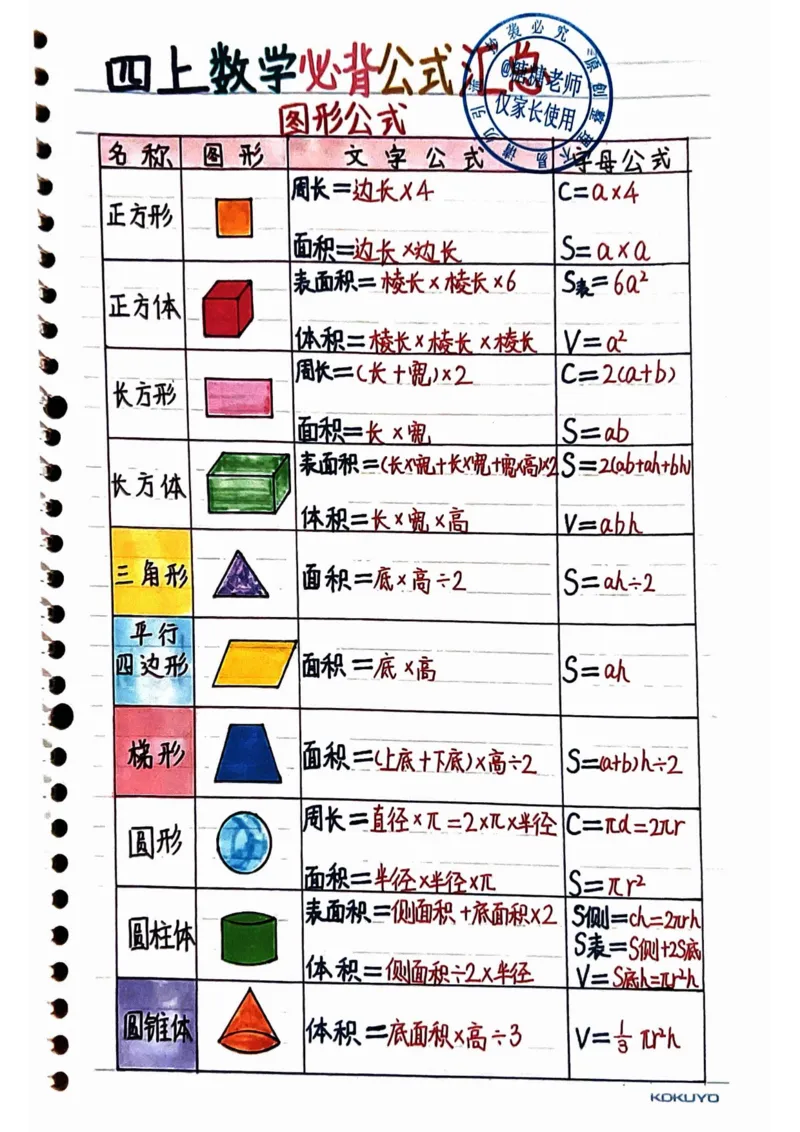 四上数学必背公式汇总
图形公式
名称 图形 文字公式 字母公式
正方形
周长=边长×4 C=a×4
面积=边长×边长 S=a×a
正方体
表面积=棱长×棱长×6 S表=6a²
体积=棱长×棱长×棱长 V=a²
长方形
周长=(长+宽)×2 C=2(a+b)
面积=长×宽 S=ab
长方体
表面积=(长×宽+长×宽+宽×高)×2 S=2(ab+ah+bh)
体积=长×宽×高 V=abh
三角形
面积=底×高÷2 S=ah÷2
平行
四边形
面积=底×高 S=ah
梯形
面积=(上底+下底)×高÷2 S=(a+b)h÷2
圆形
周长=直径×π=2×π×半径 C=πd=2πr
面积=半径×半径×π S=πr²
圆柱体
表面积=侧面积+底面积×2 S侧=ch=2πrh
S表=S侧+2S底
体积=侧面积÷2×半径 V=S底h=πr²h
圆锥体
体积=底面积×高÷3 V=⅓πr²h
老师
仅家长使用
KOKUYO